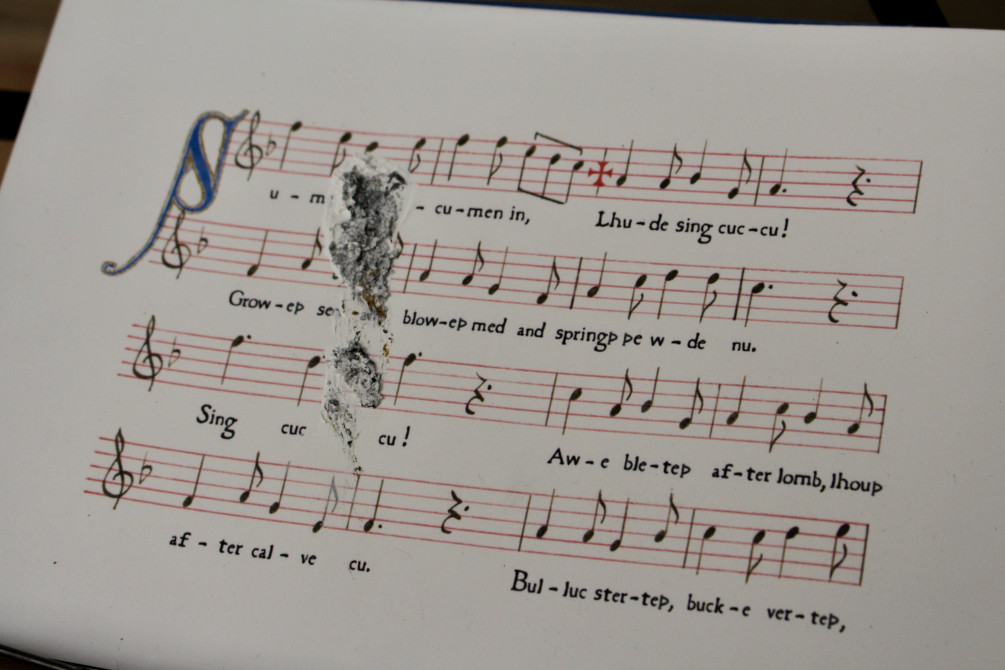 Su - m - cu - men in, Lhu - de sing cuc - cu!
Grow - eþ se blow - eþ med and springþ þe w - de nu.
Sing cuc cu! Aw - e ble - teþ af - ter lomb, lhouþ
af - ter cal - ve cu. Bul - luc ster - teþ, buck - e ver - teþ,